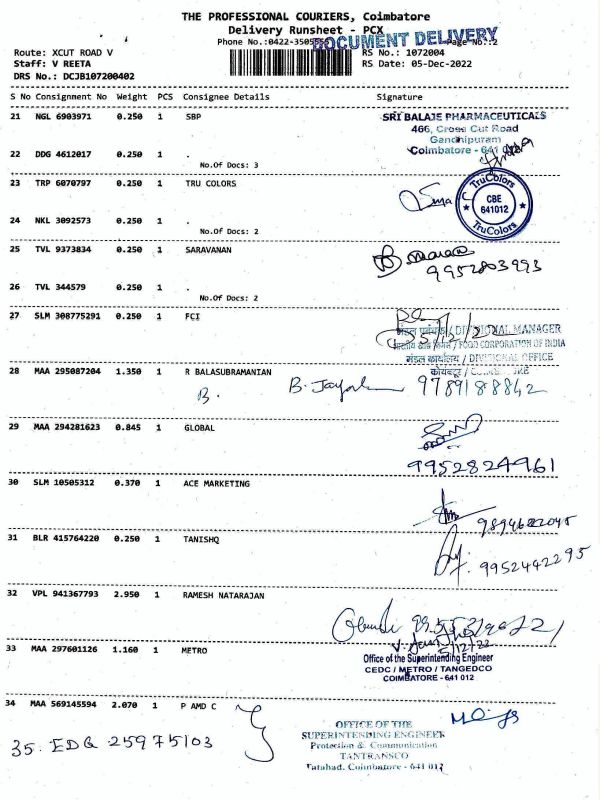 THE PROFESSIONAL COURIERS, Coimbatore
Delivery Runsheet - PCX
Phone No.:0422-350555
DOCUMENT DELIVERY
Page No.:2
Route: XCUT ROAD V
RS No.: 1072004
Staff: V REETA
RS Date: 05-Dec-2022
DRS No.: DCJB107200402
S No Consignment No Weight PCS Consignee Details Signature
21 NGL 6903971 0.250 1 SBP
SRI BALAJE PHARMACEUTICALS
466, Cross Cut Road
Gandhipuram
Coimbatore - 641 012
22 DDG 4612017 0.250 1 .
No.Of Docs: 3
23 TRP 6070797 0.250 1 TRU COLORS
TruColors
CBE
641012
TruColors
24 NKL 3092573 0.250 1 .
No.Of Docs: 2
25 TVL 9373834 0.250 1 SARAVANAN
9952803993
26 TVL 344579 0.250 1 .
No.Of Docs: 2
27 SLM 308775291 0.250 1 FCI
मंडल प्रबंधक / DIVISIONAL MANAGER
भारतीय खाद्य निगम / FOOD CORPORATION OF INDIA
मंडल कार्यालय / DIVISIONAL OFFICE
28 MAA 295087204 1.350 1 R BALASUBRAMANIAN
B. 9789188842
29 MAA 294281623 0.845 1 GLOBAL
9952824961
30 SLM 10505312 0.370 1 ACE MARKETING
31 BLR 415764220 0.250 1 TANISHQ
9952442295
32 VPL 941367793 2.950 1 RAMESH NATARAJAN
5/12/22
33 MAA 297601126 1.160 1 METRO
Office of the Superintending Engineer
CEDC / METRO / TANGEDCO
COIMBATORE - 641 012
34 MAA 569145594 2.070 1 P AMD C
OFFICE OF THE
SUPERINTENDING ENGINEER
Protection & Communication
TANTRANSCO
Tatabad, Coimbatore - 641 012
35. EDG 25975103